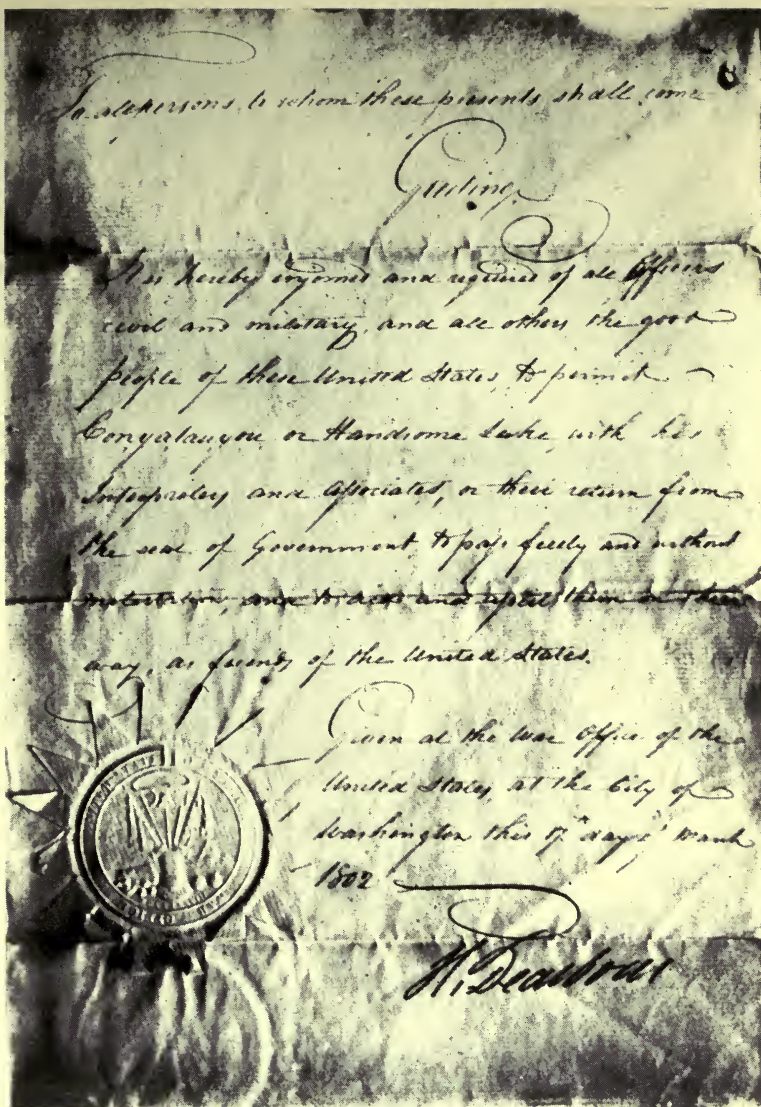 To all persons to whom these presents shall come
Greeting.
It is hereby enjoined and required of all Officers
civil and military, and all others the good
people of these United States, to permit
or Handsome Lake, with his
Interpreters and associates, on their return from
the seat of Government to pass freely and without
molestation, and to aid and assist them on their
way, as friends of the United States.
Given at the War Office of the
United States, at the City of
Washington this 17th day of March
1802
H. Dearborn